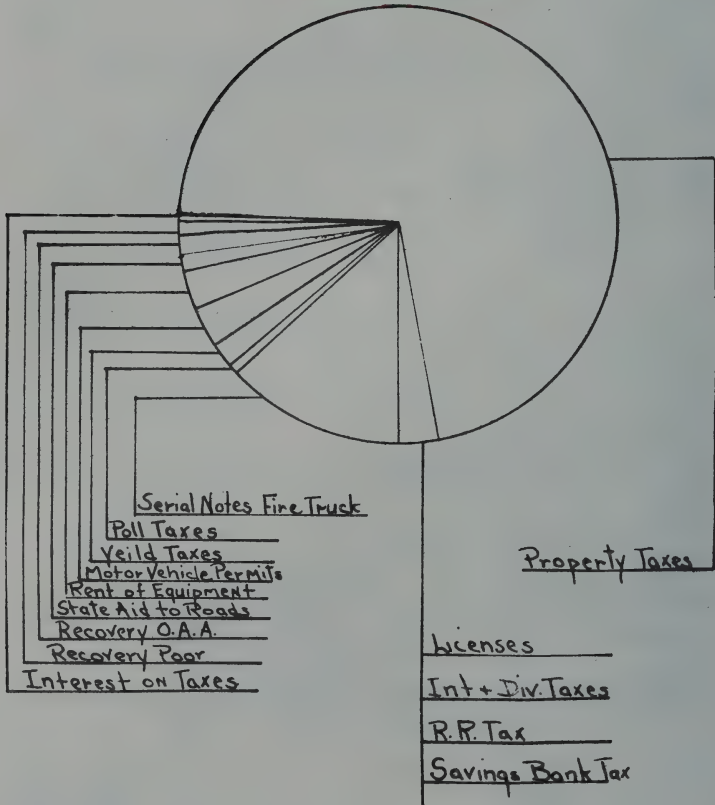 Serial Notes Fire Truck
Poll Taxes
Veild Taxes
Motor Vehicle Permits
Rent of Equipment
State Aid to Roads
Recovery O.A.A.
Recovery Poor
Interest on Taxes
Property Taxes
Licenses
Int + Div. Taxes
R.R. Tax
Savings Bank Tax